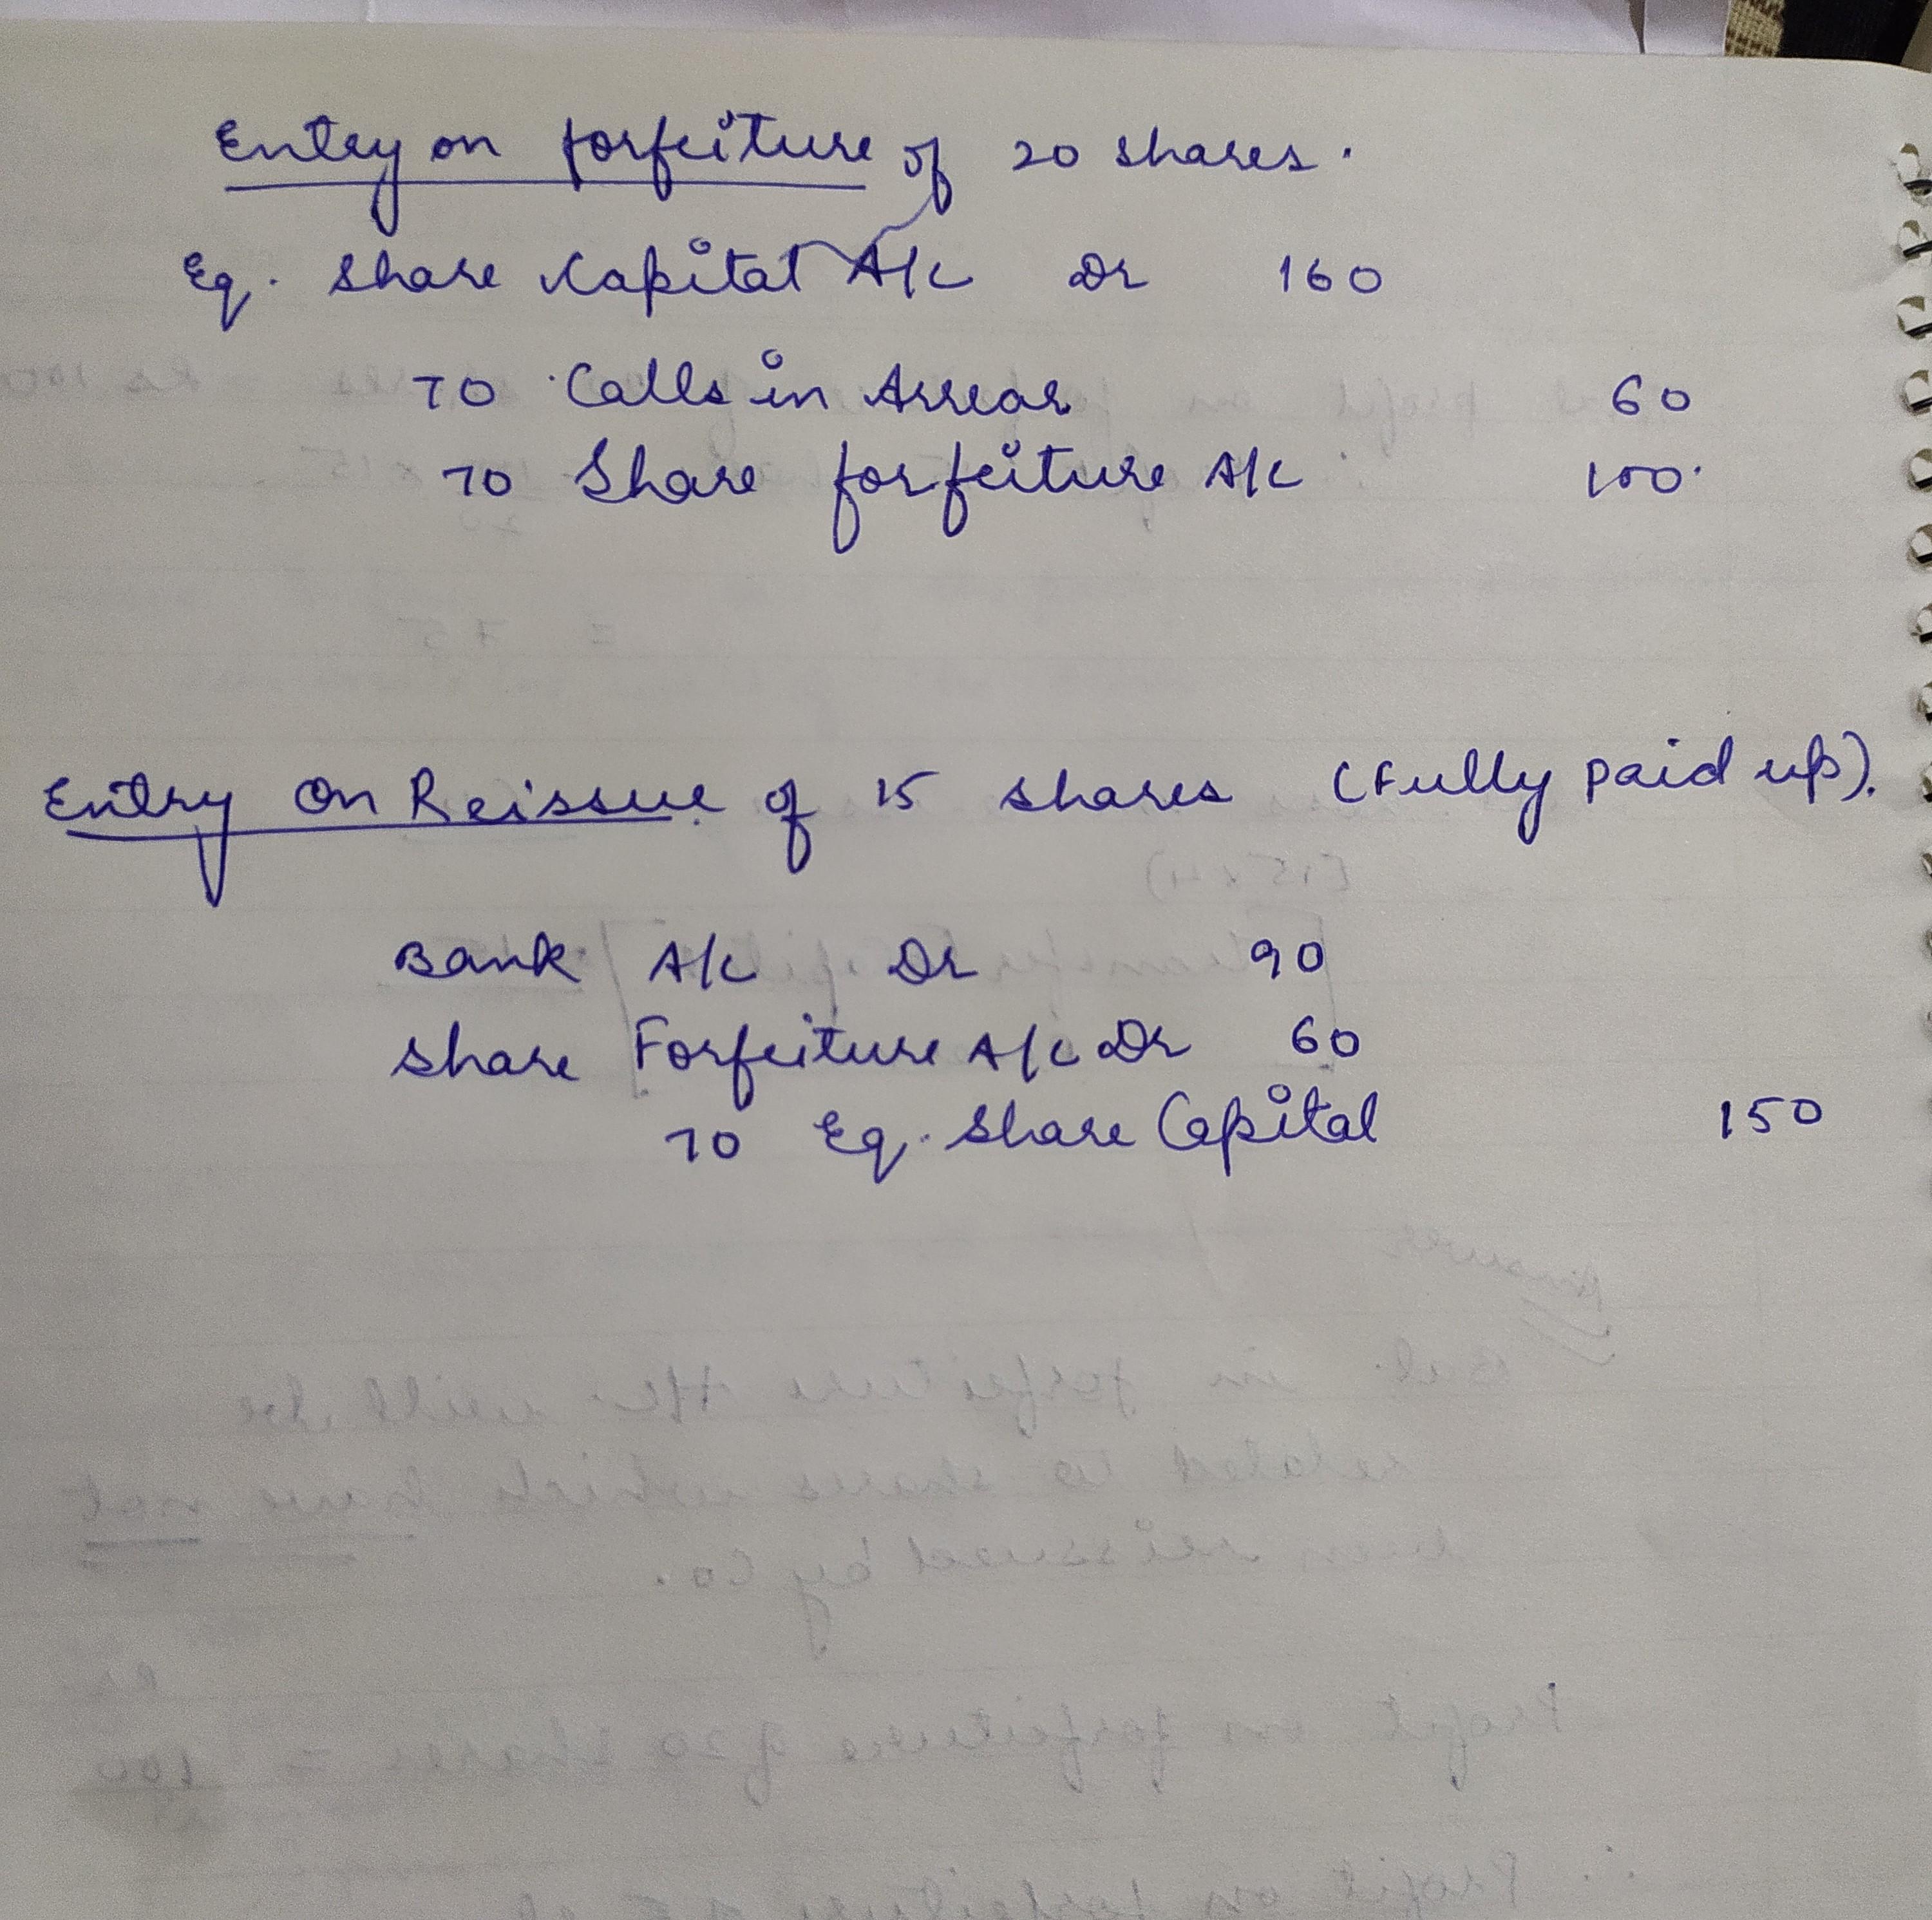 Entry on forfeiture of 20 shares.
Eq. Share Capital A/c Dr 160
TO Calls in Arrear 60
TO Share forfeiture A/c 100
Entry On Reissue of 15 shares (Fully paid up).
Bank A/c Dr 90
Share Forfeiture A/c Dr 60
TO Eq. Share Capital 150